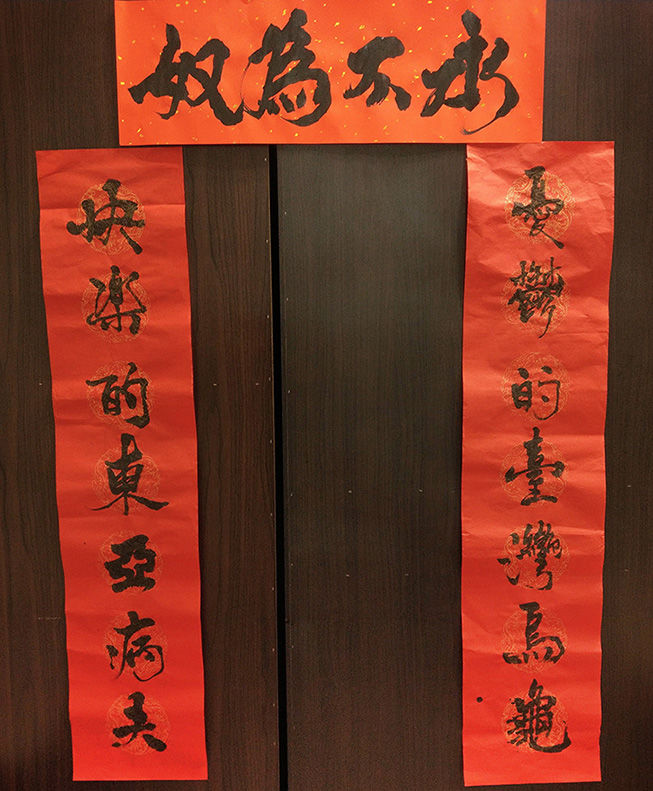 永不為奴
憂鬱的臺灣烏龜
快樂的東亞病夫